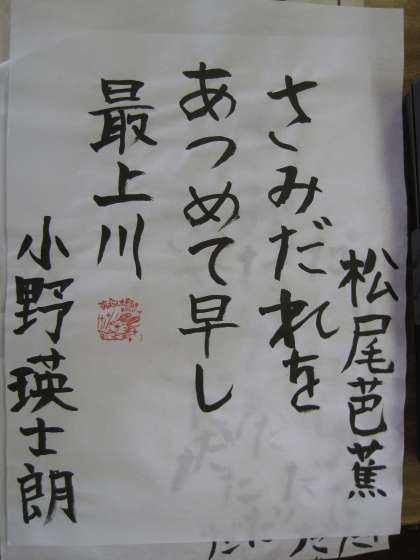 松尾芭蕉
さみだれを
あつめて早し
最上川
小野瑛士朗